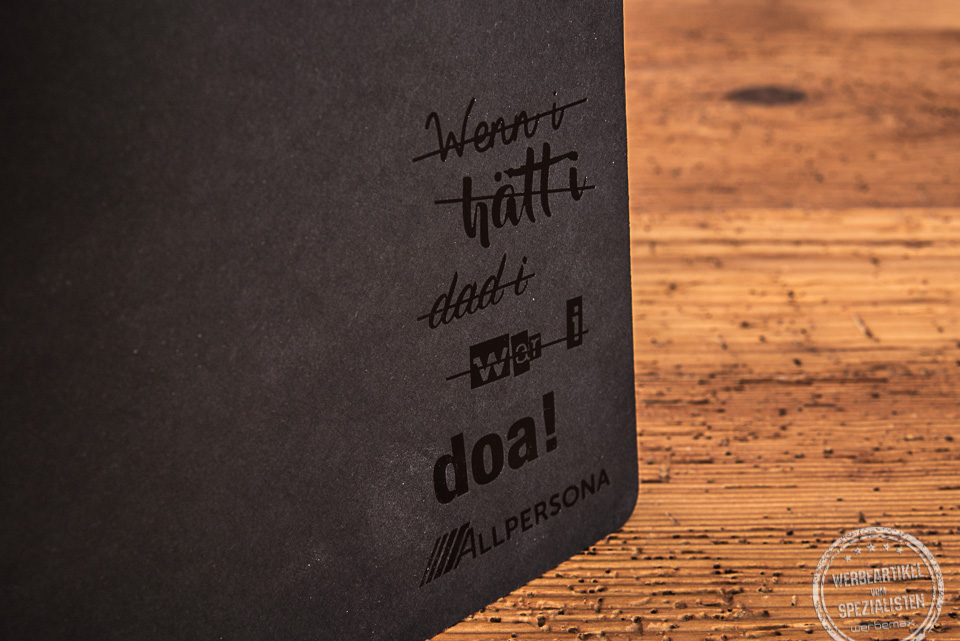 Wenn i
hätt i
dad i
war i
doa!
ALLPERSONA
WERBEARTIKEL
VOM
SPEZIALISTEN
werbemax